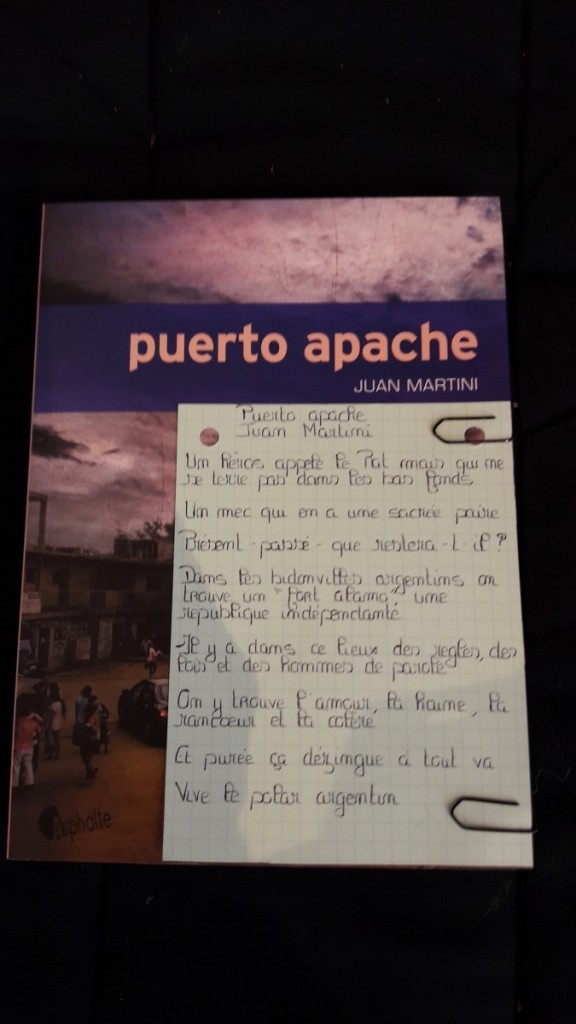 puerto apache
JUAN MARTINI
Puerto apache
Juan Martini
Un héros appelé le Rat mais qui ne
se terre pas dans les bas fonds
Un mec qui en a une sacrée paire
Présent - passé - que restera-t-il ?
Dans les bidonvilles argentins on
trouve un "fort alamo", une
republique indépendante
Il y a dans ce lieux des règles, des
lois et des hommes de parole
On y trouve l'amour, la haine, la
rancoeur et la colère
Et purée ça dézingue a tout va
Vive le polar argentin
Asphalte